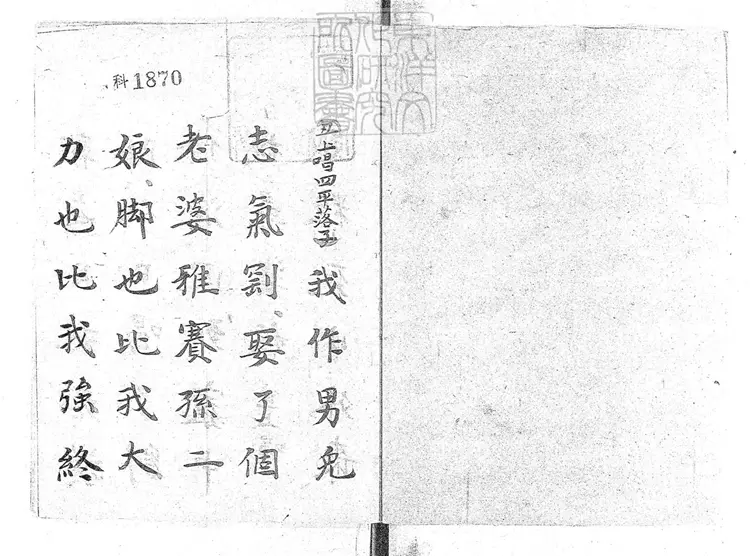 科1870
丑上唱四平落子 我作男免
志氣剛娶了個
老婆雅賽孫二
娘脚也比我大
力也比我強終
東洋文化研究所圖書